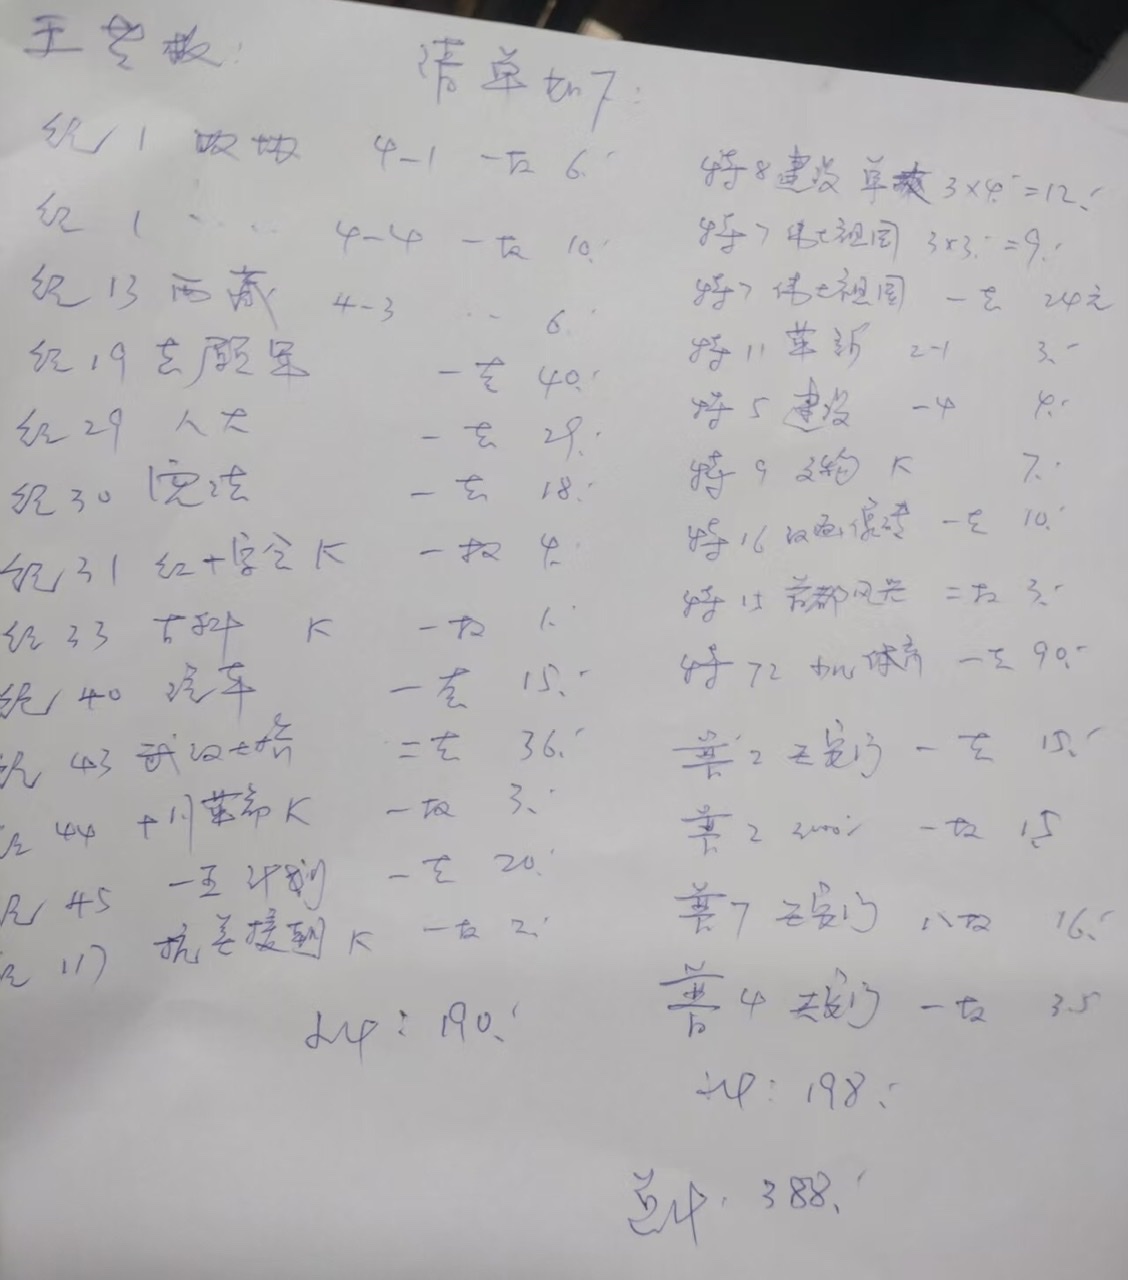 清单如下:
纪1 4-1 一枚 6.
纪1 ‥ ‥ 4-4 一枚 10.
纪13 西藏 4-3 ‥ 6.
纪19 志愿军 一套 40.
纪29 人大 一套 29.
纪30 宪法 一套 18.
纪31 红十字会 K 一枚 4.
纪33 古科 K 一枚 1.
纪40 汽车 一套 15.
纪43 武汉大桥 二套 36.
纪44 十月革命 K 一枚 3.
纪45 一五计划 一套 20.
纪117 抗美援朝 K 一枚 2.
计: 190.
特8 建设 3×4=12.
特7 伟大祖国 3×3=9.
特7 伟大祖国 一套 24元
特11 革新 2-1 3.
特5 建设 -4 4.
特9 文物 K 7.
特16 一套 10.
特15 首都风光 二枚 3.
特72 体育 一套 90.
普2 天安门 一套 15.
普2 一枚 15
普7 天安门 八枚 16.
普4 天安门 一枚 3.5
计: 198.
总计: 388.